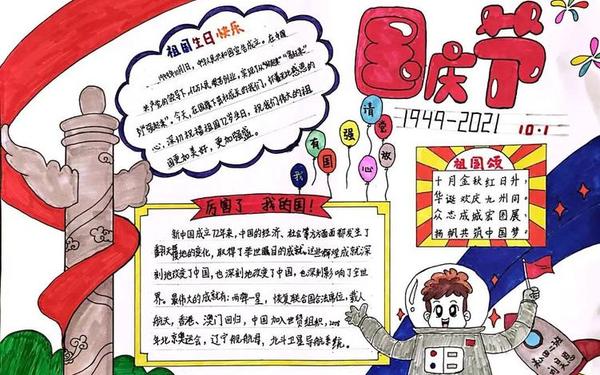 国庆节
1949-2021
10.1
祖国生日快乐
1949年10月1日,中华人民共和国宣告成立。在中国
心,深切祝福祖国72岁生日,祝我们伟大的祖
国更加美好,更加强盛。
请党放心
强国有我
祖国颂
十月金秋红日升,
华诞欢庆九州间。
众志成城宏图展,
扬帆共筑中国梦。
厉害了 我的国!
新中国成立72年来,中国的经济、社会等方方面面都发生了
翻天覆地的变化,取得了举世瞩目的成就。这些辉煌成就深
刻地改变了中国,也深刻地改变了中国,也深刻影响了全世
界。最伟大的成就有:两弹一星,恢复联合国合法席位,载人
航天,香港、澳门回归,中国加入世贸组织,2008
年北京奥运会,辽宁舰航母,北斗卫星导航系统。